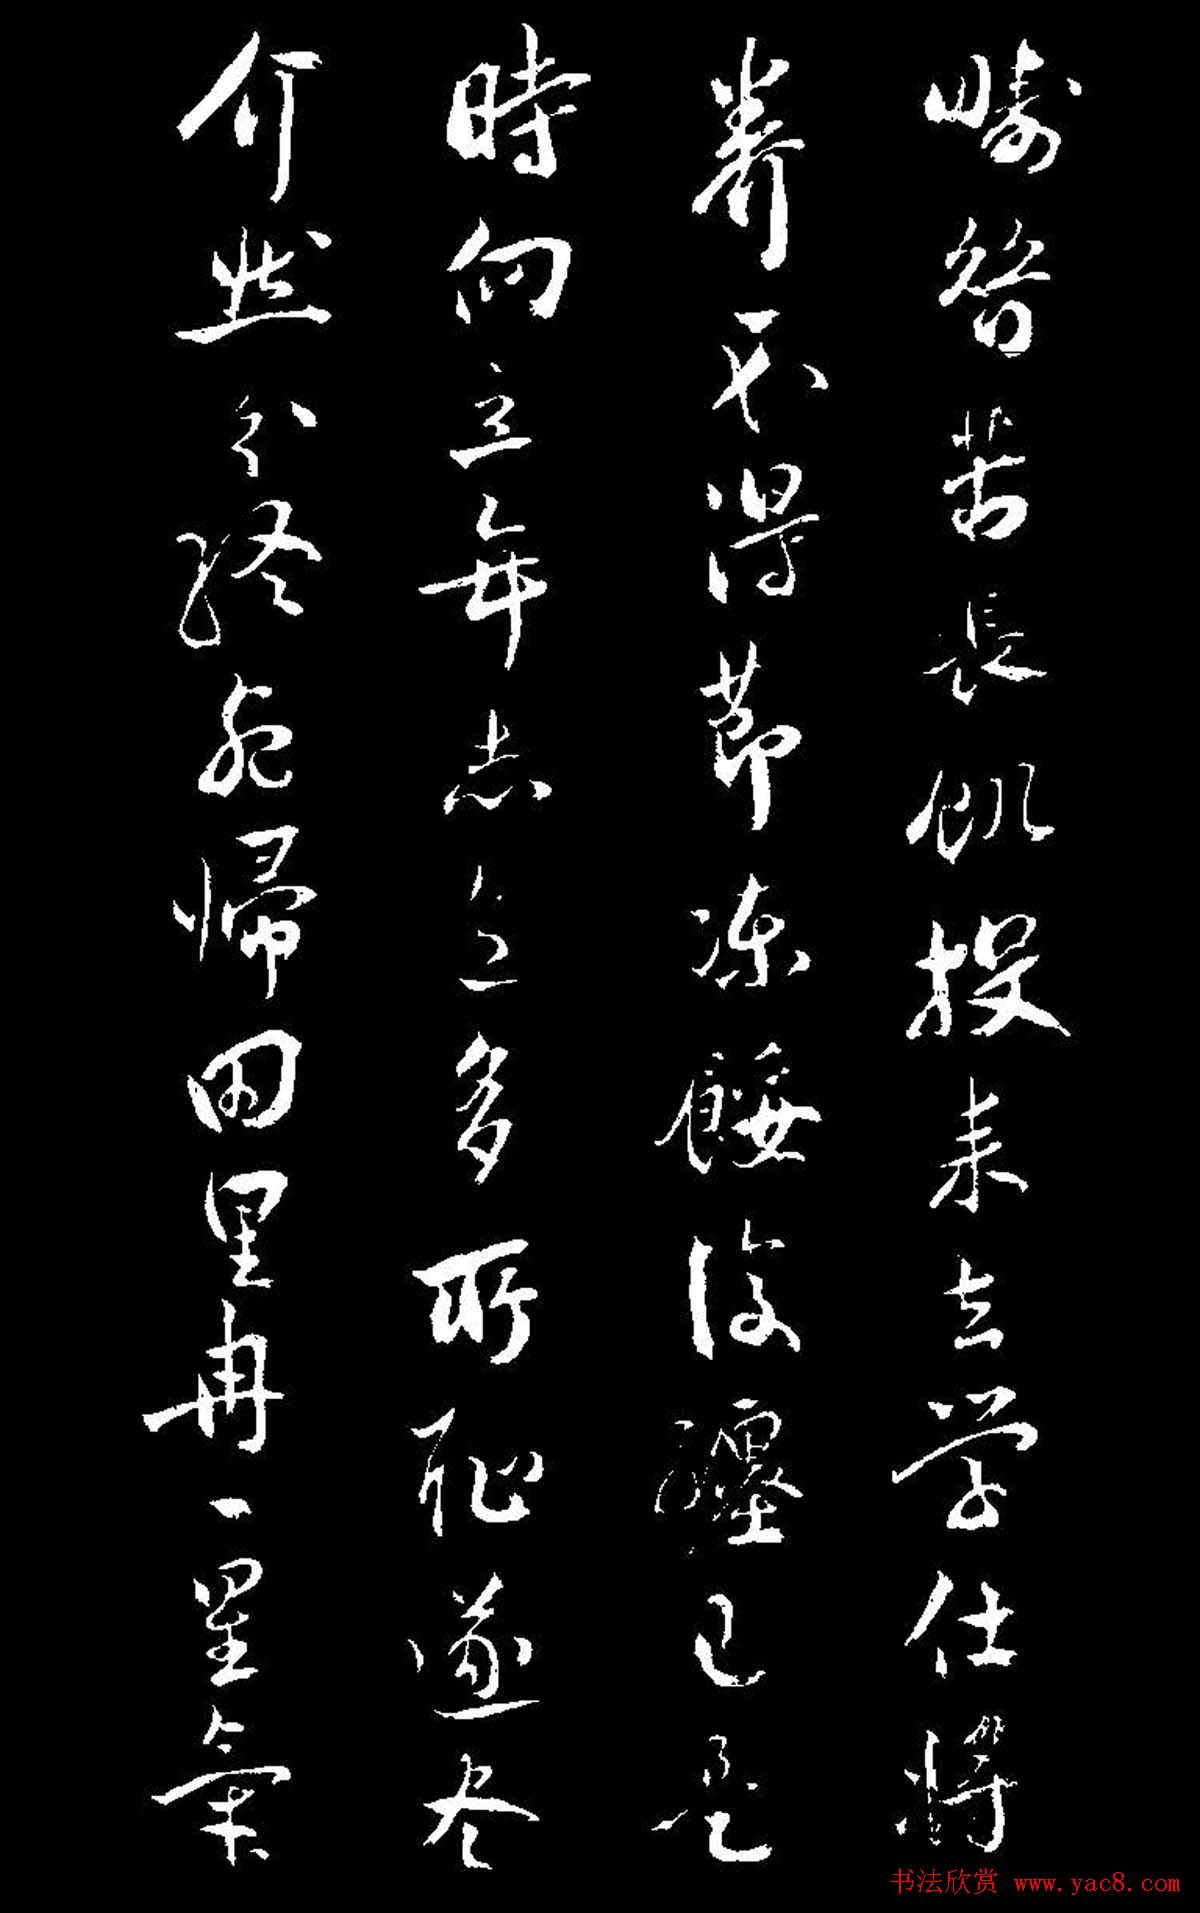 疇昔苦長飢投耒去學仕將
養不得節凍餒固纏己是
時向立年志意多所恥遂尽
介然分終死歸田里冉冉星氣
书法欣赏 www.yac8.com